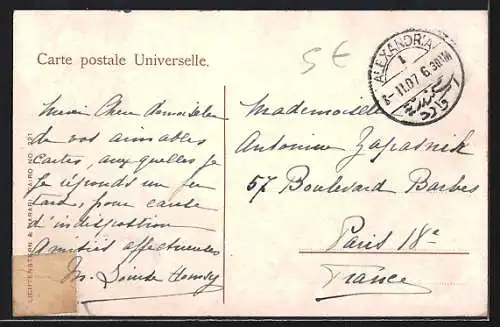 Carte postale Universelle.
5€
ALEXANDRIA
1
8-11.07 6.30PM
Merci Chère demoiselle
de vos aimables
cartes, auxquelles je
je réponds un peu
tard, pour cause
d'indisposition
Amitiés affectueuses
M. Louise
Mademoiselle
Antonine Zapasnik
57 Boulevard Barbes
Paris 18e
France
LICHTENSTERN & HARARI, CAIRO NO.